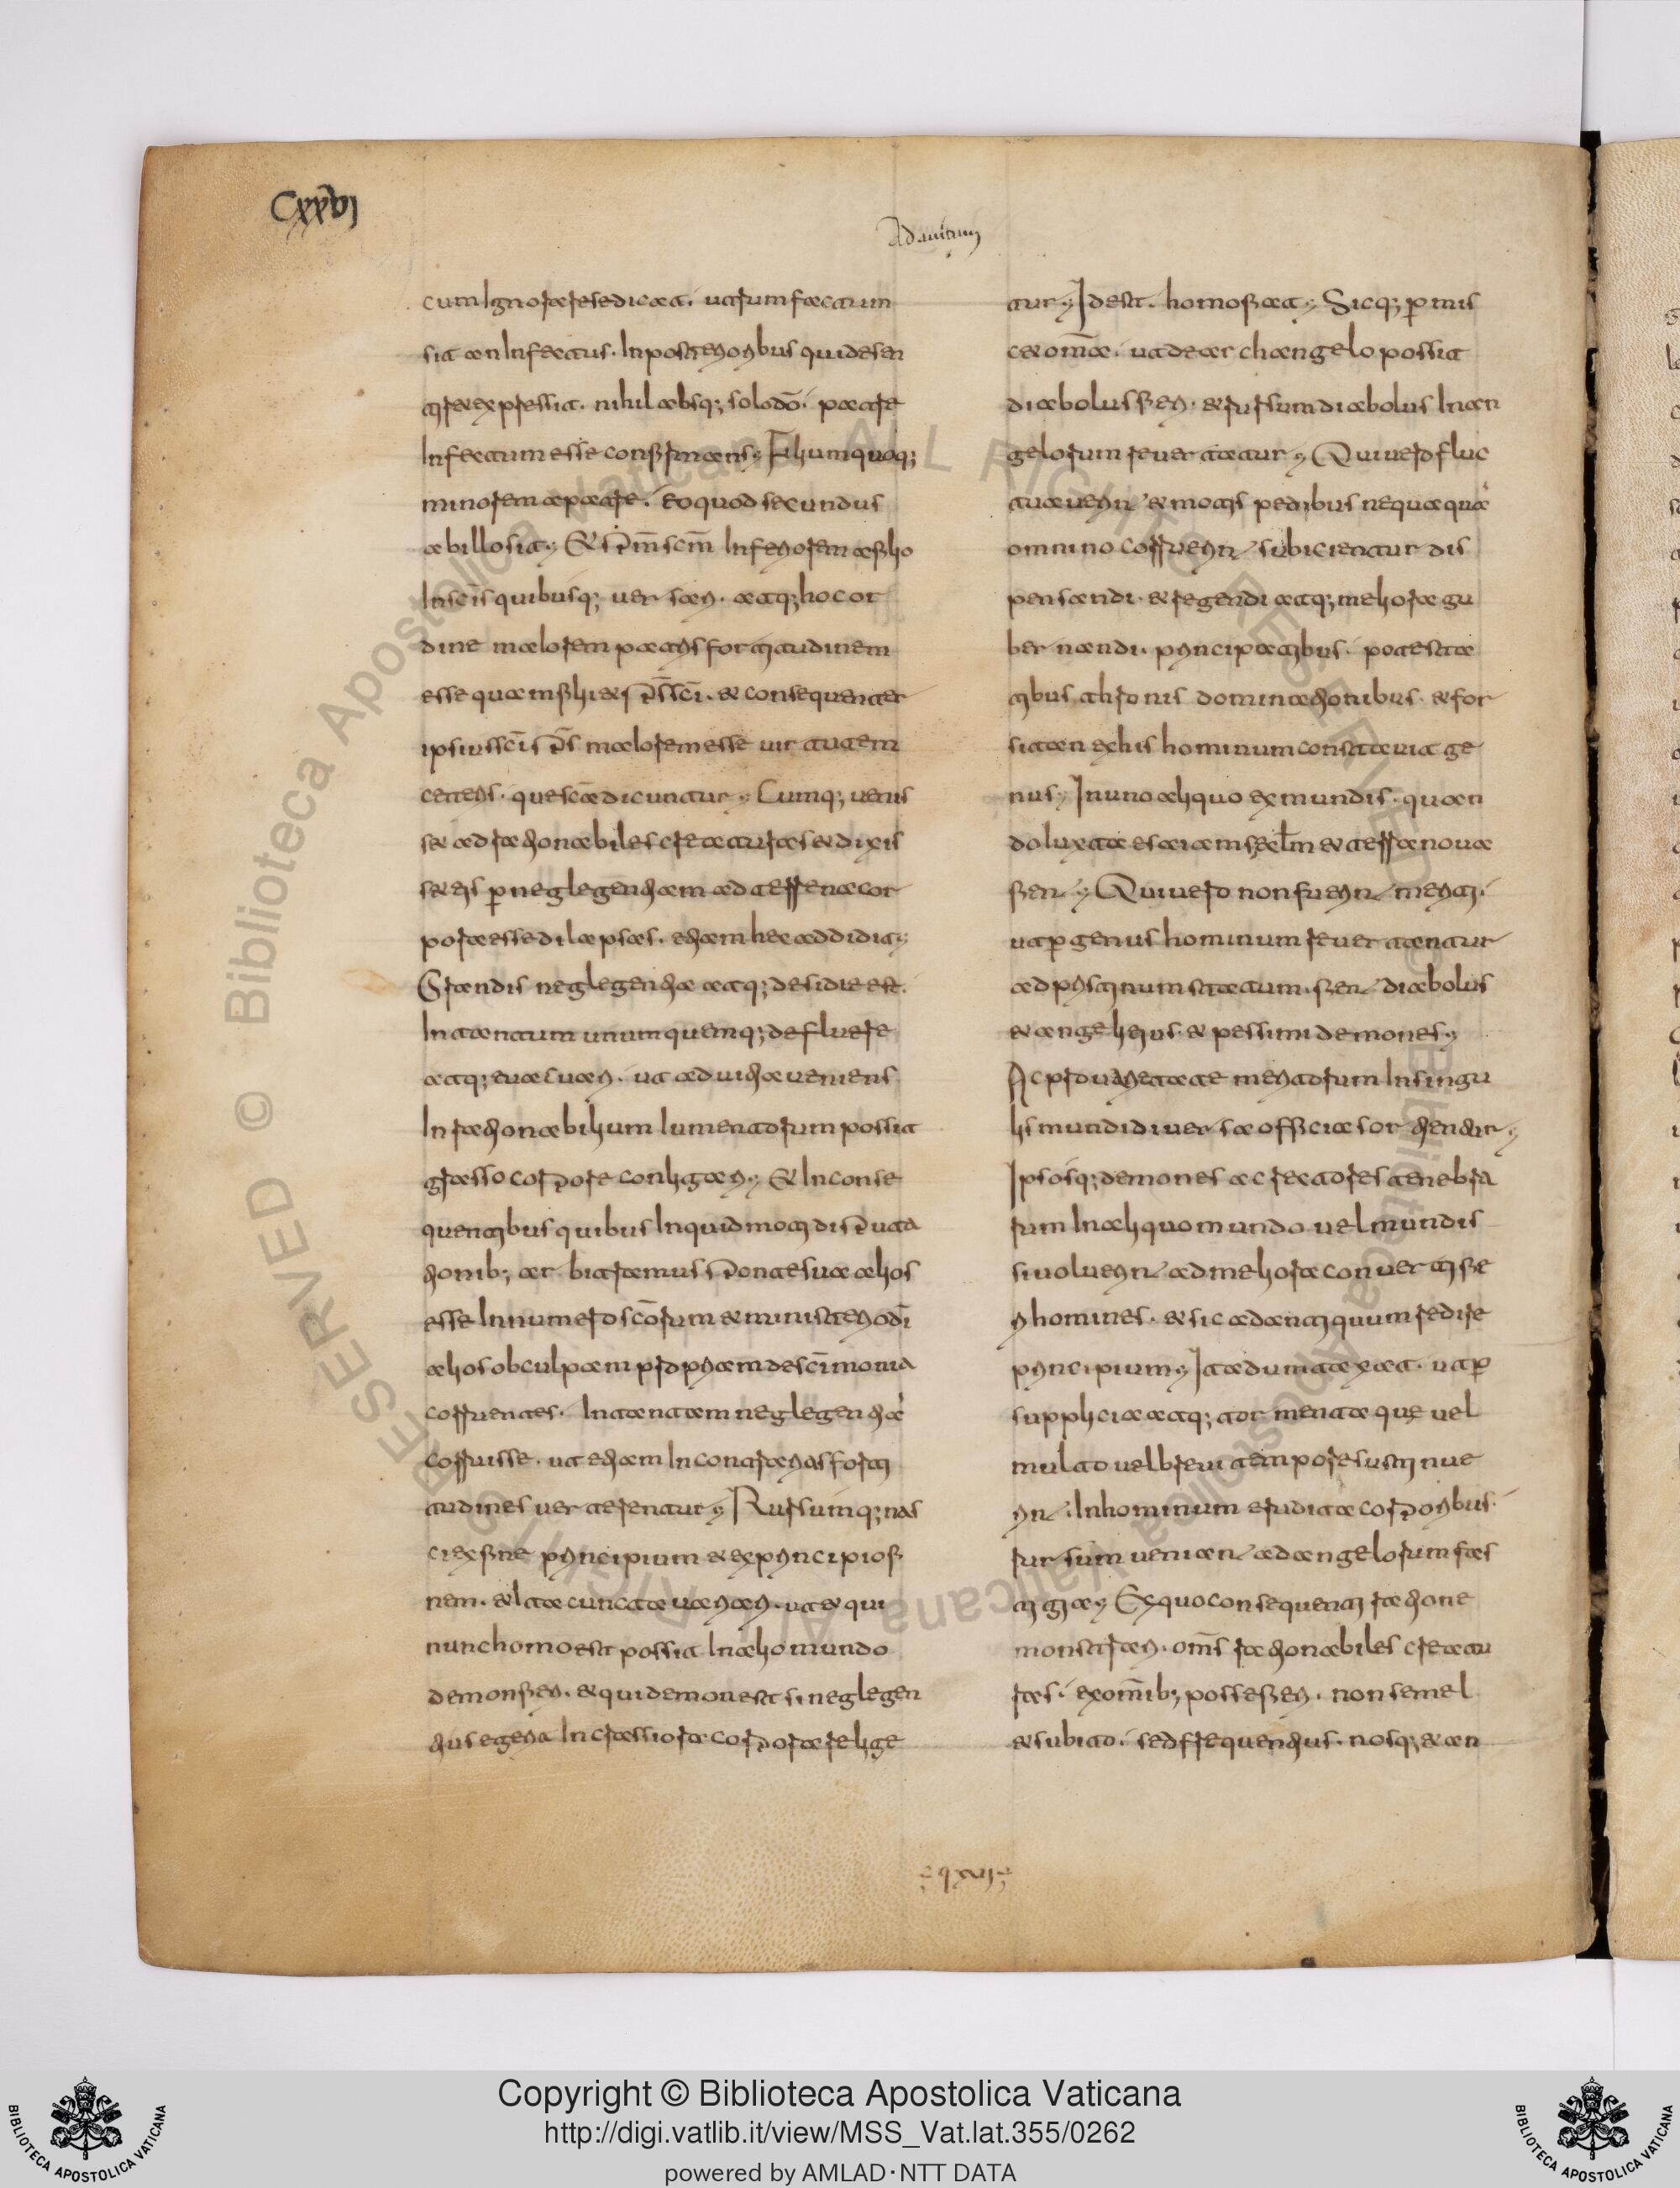 CXXVI
Ad auitum
cum Ignorare se dicat. utrum factum
sit an Infectus. In posterioribus quid desen
tiret expressit. nihil absq; solo dō. patre
Infectum esse confirmans. Filium quoq;
minorem a patre. eo quod secundus
ab illo sit. Et spm̄ scm̄ Inferiorem a filio
In scīs quibusq; uersari. atq; hoc or
dine maiorem patris fortitudinem
esse quam filii et sps̄ scī. et consequenter
ipsius scīs sps̄ maiorem esse uirtutem
ceteris. que scā dicuntur. Cumq; uenis
set ad rationabiles creaturas et dixis
set eis ꝑ neglegentiam ad terrena cor
pora esse dilapsas. etiam hec addidit.
Grandis neglegentia atq; desidie est.
In tantum unumquemq; defluere
atq; euacuari. ut ad uitia ueniens
Inrationabilium Iumentorum possit
grasso corpore conligari. Et In conse
quentibus quibus Inquid moti disputa
tionib; arbitramus sponte sua alios
esse In numero scōrum et ministerio dī
alios ob culpam propriam de scīmonia
corruentes. In tantam neglegentiā
corruisse. ut etiam In contrarias forti
tudines uerterentur. Rursumq; nas
ci ex fine principium et ex principio fi
nem. et Ita cuncta uariari. ut et qui
nunc homo est possit In alio mundo
demon fieri. et qui demon est si neglegen
tius egerit In crassiora corpora relige
tur. Id est. homo fiat. Sicq; ꝑmis
cet omīa. ut de archangelo possit
diabolus fieri. et rursum diabolus In an
gelorum reuertatur. Qui uero fluc
tuauerint et motis pedibus nequaquā
omnino corruerint subicientur dis
pensandi. et regendi atq; meliora gu
bernandi. principatibus. potesta
tibus thronis dominationibus. et for
sitan ex his hominum constauit ge
nus. In uno aliquo ex mundis. quan
do Iuxta esaiam celm̄ et terra noua
fient. Qui uero non fuerint meriti.
ut ꝑ genus hominum reuertantur
ad pristinum statum. fient diabolus
et angeli eius. et pessimi demones.
Ac pro uarietate meritorum In singu
lis mundi diuersa officia sortientur.
Ipsosq; demones ac rectores tenebra
rum In aliquo mundo uel mundis
si uoluerint ad meliora conuerti fie
ri homines. et sic ad antiquum redire
principium. Ita dumtaxat. ut ꝑ
supplicia atq; tormenta que uel
multo uel breui tempore sustinue
rint. In hominum erudita corporibus.
rursum ueniant ad angelorum fas
tigia. Ex quo consequenti ratione
monstrari. oms̄ rationabiles creatu
ras. ex omīb; posse fieri. non semel
et subito. sed frequentius. nosq; et an
q xuii
Copyright © Biblioteca Apostolica Vaticana
http://digi.vatlib.it/view/MSS_Vat.lat.355/0262
powered by AMLAD·NTT DATA